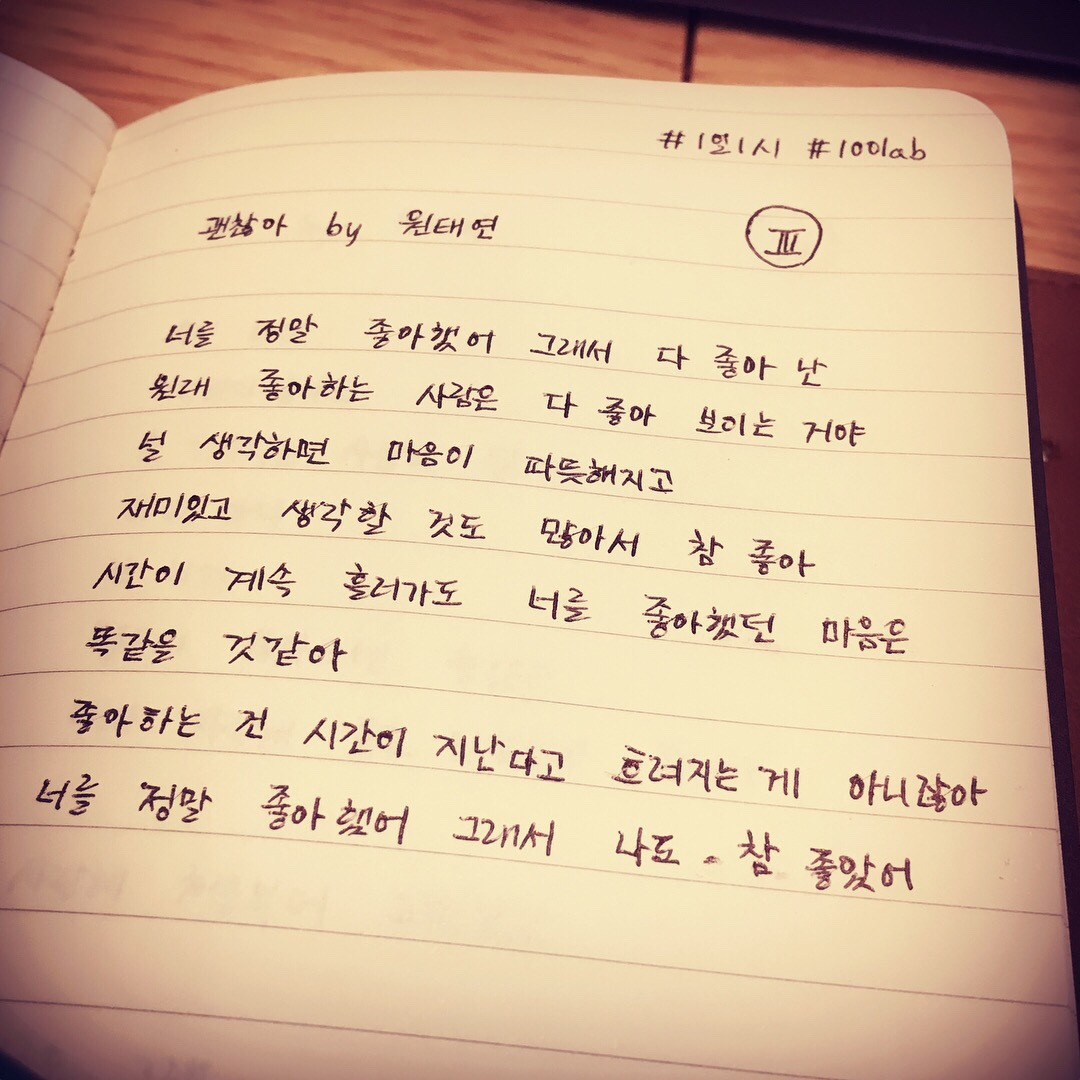 #1일1시 #100lab
괜찮아 by 원태연 Ⅲ
너를 정말 좋아했어 그래서 다 좋아 난
원래 좋아하는 사람은 다 좋아 보이는 거야
널 생각하면 마음이 따뜻해지고
재미있고 생각할 것도 많아서 참 좋아
시간이 계속 흘러가도 너를 좋아했던 마음은
똑같을 것같아
좋아하는 건 시간이 지난다고 흐려지는 게 아니잖아
너를 정말 좋아했어 그래서 나도. 참 좋았어